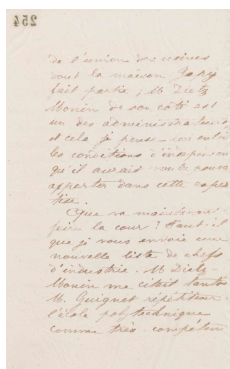 254
de l'union des usines
dont la maison Japy
fait partie, M Dietz
Monin de son côté est
un des administrateurs
et cela je pense
les conditions d'
qu'il aurait
apporter dans cette
tise.
Que va maintenant
faire la cour ? Faut-il
que je vous envoie une
nouvelle liste de chefs
d'industrie. M Dietz-
Monin me citait tantôt
M. Guignet répétiteur à
l'école polytechnique
comme très compétent